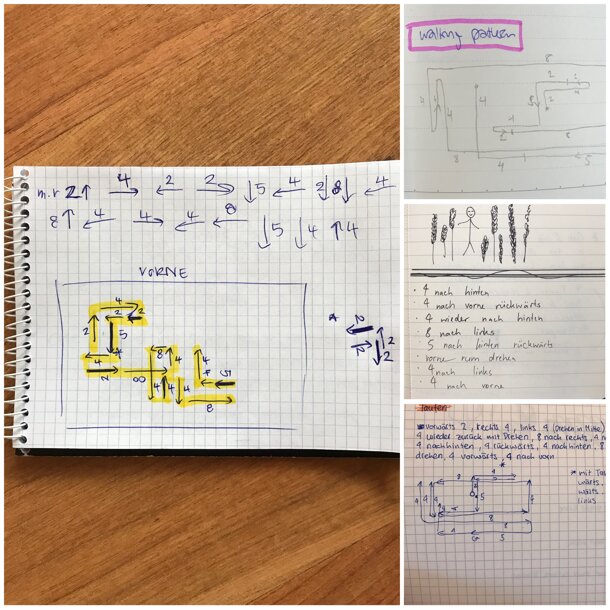 m.r 2↑ 4→ 2← 2→ ↓5 4← 2↓8↓ 4←
8↑ 4← 4→ 4← 8← ↓5 ↓4 ↑4
VORNE
walking pattern
· 4 nach hinten
· 4 nach vorne rückwärts
· 4 wieder nach hinten
· 8 nach links
· 5 nach hinten rückwärts
· vorne rum drehen
· 4 nach links
· 4 nach vorne
laufen
vorwärts 2, rechts 4, links 4 (Drehen in Mitte)
4 wieder zurück mit Drehen, 8 nach rechts, 4 n
4 nach hinten, 4 rückwärts, 4 nach hinten, 8
drehen, 4 vorwärts, 4 nach vorn
* mit Tas
wärts.
wärts.
links